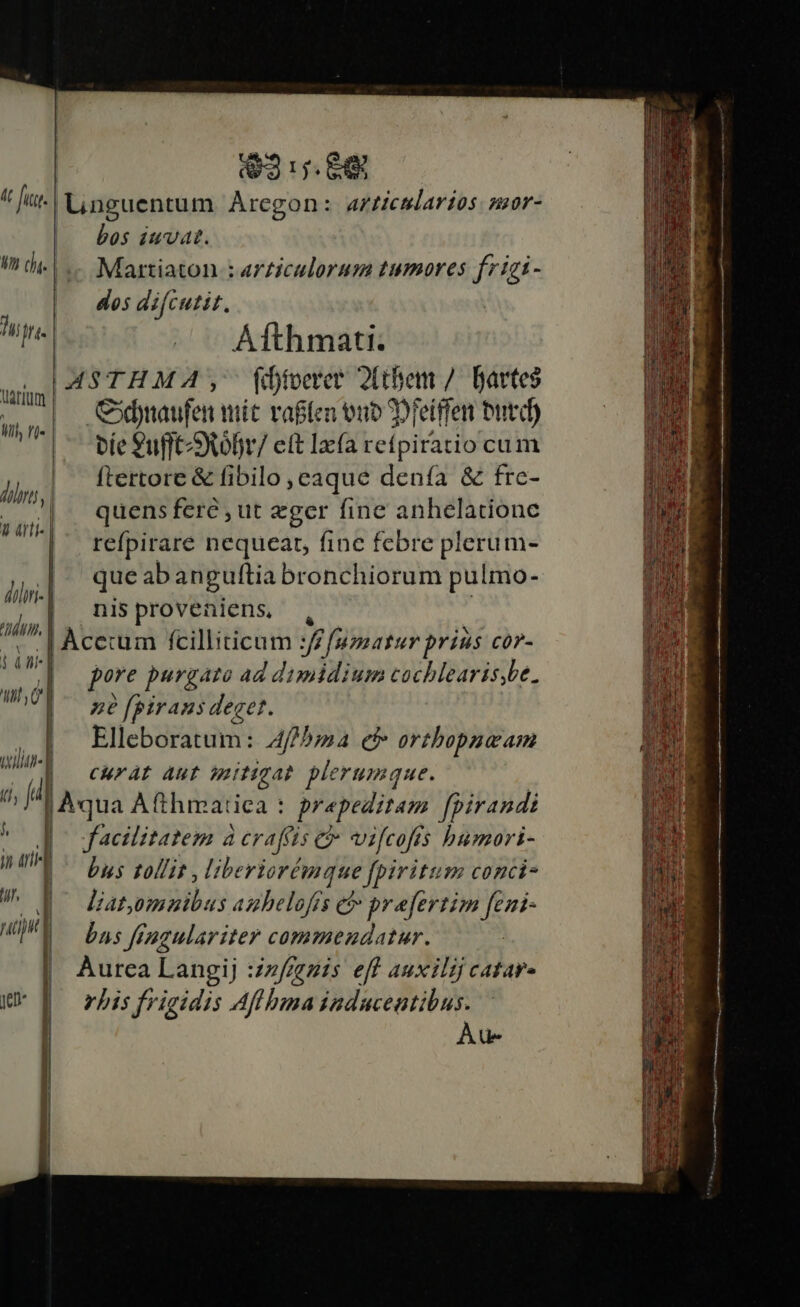 15.
Unguentum Aregon: articularios mor-
bos iuvat.
Martiaton : articulorum tumores frigi-
dos diſcutit.
Aſthmati.
ASTHMA, ſchwerer Athem / hartes
Schnaufen mit raßlen vnd Pfeiffen durch
die Lufft-Röhr/ eſt læſa reſpiratio cum
ſtertore & ſibilo, eaque denſa & fre-
quens ferè, ut æger ſine anhelatione
reſpirare nequeat, ſine febre plerum-
que ab anguſtia bronchiorum pulmo-
nis proveniens.
Acetum ſcilliticum : ſi ſumatur priùs cor-
pore purgato ad dimidium cochlearis, be-
nè ſpirans deget.
Elleboratum: Aſthma & orthopnœam
curat aut mitigat plerumque.
Aqua Aſthmatica : præpeditam ſpirandi
facilitatem à craſſis & viſcoſis humori-
bus tollit, liberiorémque ſpiritum conci-
liat, omnibus anheloſis & præſertim ſeni-
bus ſingulariter commendatur.
Aurea Langij : inſignis eſt auxilij catar-
rhis frigidis Aſthma inducentibus.
Au-